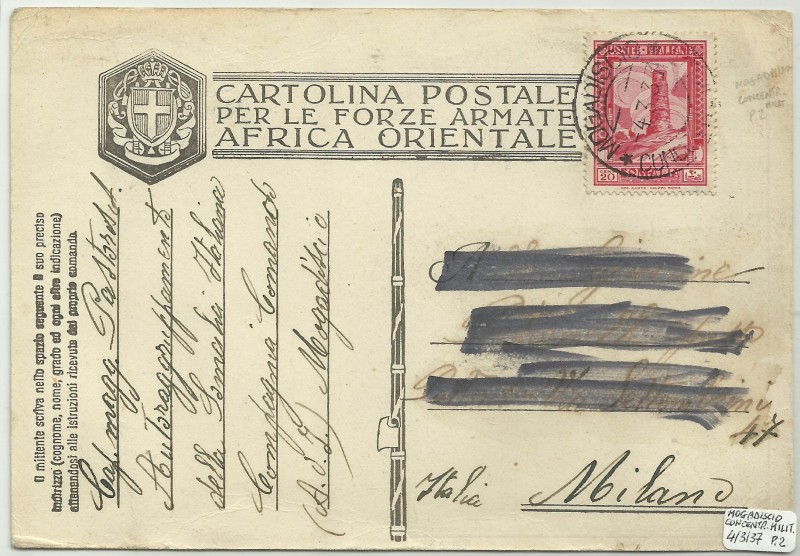 CARTOLINA POSTALE
PER LE FORZE ARMATE
AFRICA ORIENTALE
POSTE ITALIANE
MOGADISCIO
CENT. 20
SOMALIA
MOGADISCIO
CONCENTR.
MILIT
P.2
Il mittente scriva nello spazio seguente il suo preciso
indirizzo (cognome, nome, grado ed ogni altra indicazione)
attenendosi alle istruzioni ricevute dal proprio comando.
Cap. magg.
Autoraggruppamento
della Somalia Italiana
Compagnia Comando
(A.O.I.) Mogadiscio
A
47
Italia
Milano
MOGADISCIO
CONCENTR. MILIT.
4/3/37 P.2